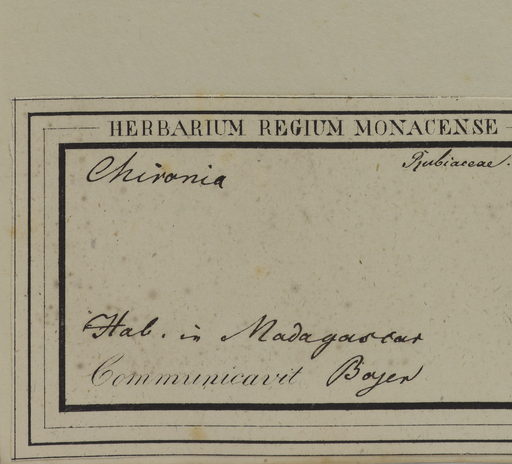 HERBARIUM REGIUM MONACENSE
Rubiaceae.
Chironia
Hab. in Madagascar
Communicavit Bojer